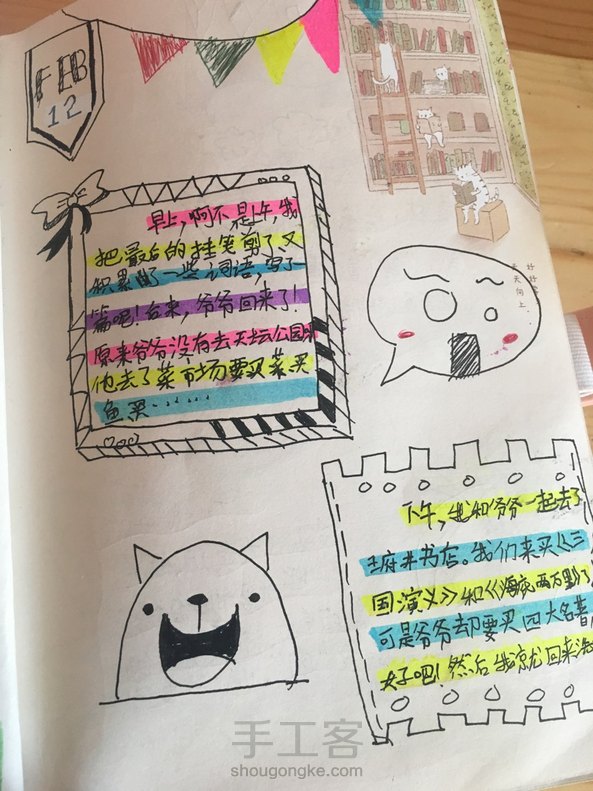 FEB
12
早上,啊不是上午,我
把最后的挂笺剪了,又
积累了一些词语,写了一
篇吧!后来,爷爷回来了!
原来爷爷没有去天坛公园
他去了菜市场要买菜买
鱼买……
好好学
天天向上.
下午,我和爷爷一起去了
王府井书店。我们来买《三
国演义》和《海底两万里》
可是爷爷却要买四大名著,
好吧!然后我就回来
手工客
shougongke.com